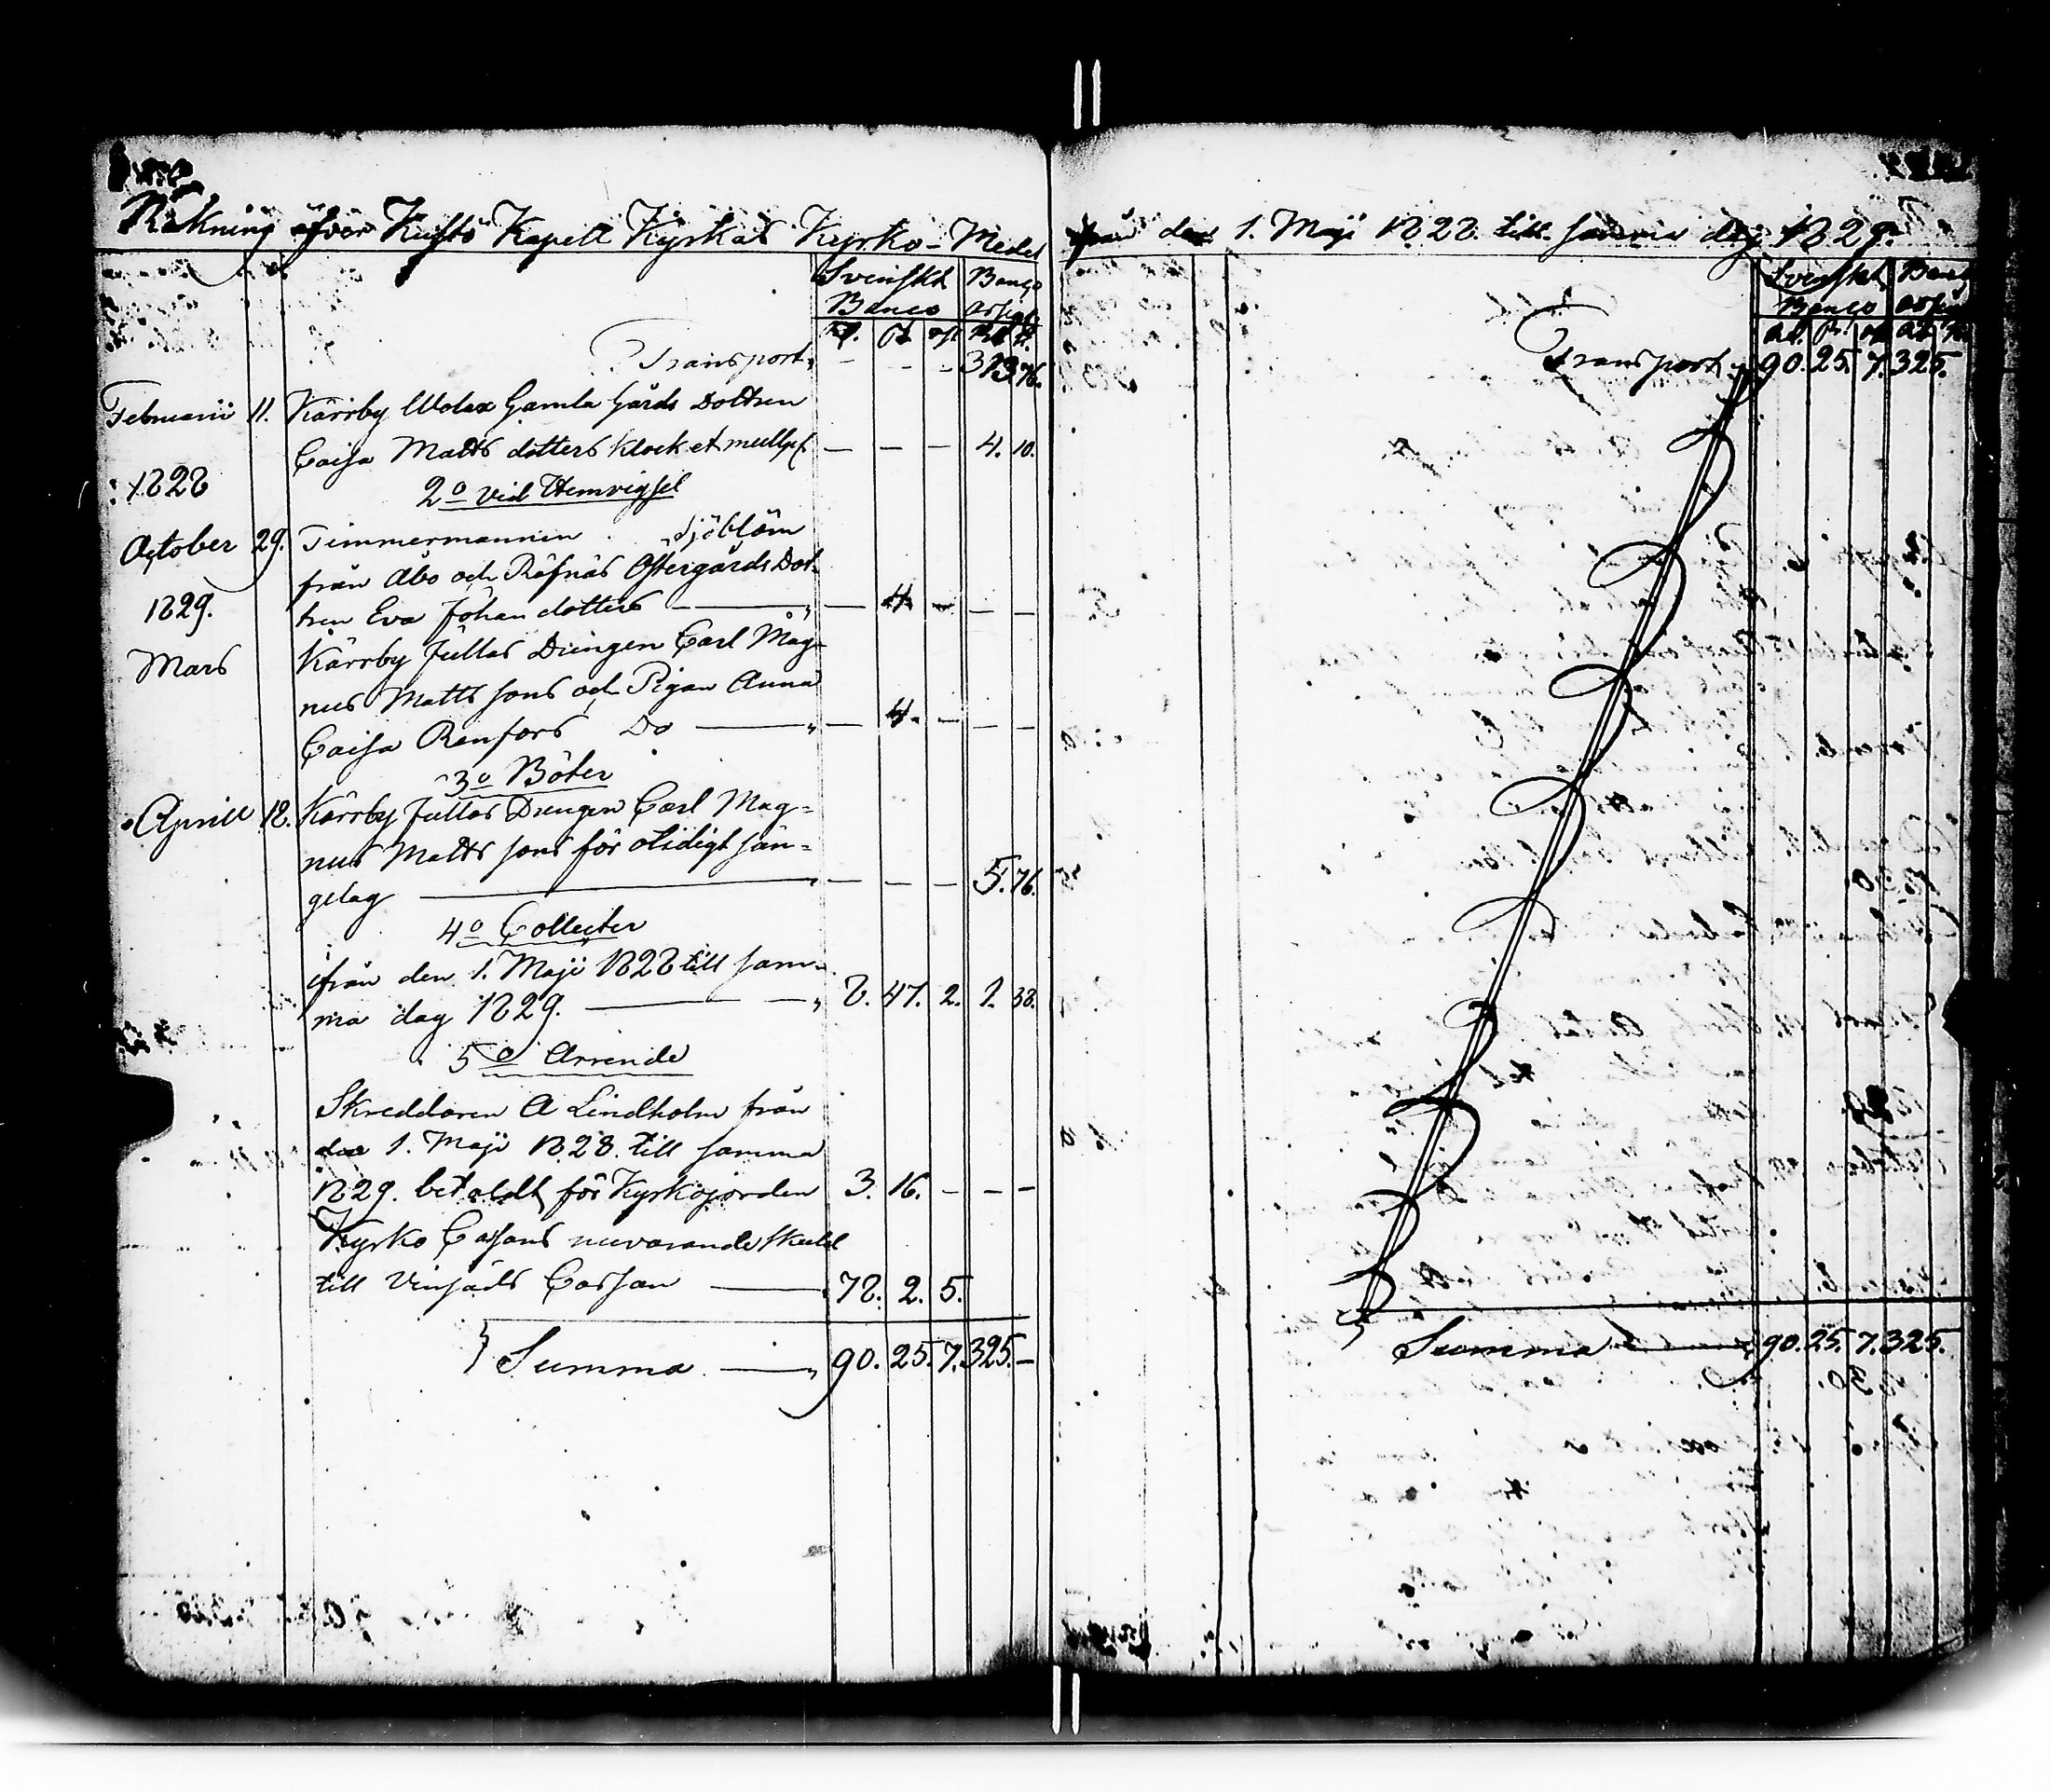 Räkning öfver Kustö Kapell Kyrkas Kyrko-Medel
Svenskt Banco
Banco assign
Transport, — — — 313. 76.
Februarii 11. Kärrby Wolax Gamla Gårds Dottren
Caisa Matts dotters klock et mullpg — — — 4. 10.
1828
2o vid Hemvigsel
October 29. Timmermannen Sjöblöm
från Åbo och Räfnäs Östergårds Dot-
tren Eva Johan dotters — — 4. — — —
1829.
Mars Kärrby Jullas Drengen Carl Mag-
nus Matts sons och Pigan Anna
Caisa Renfors Do — — 4. — — —
3o Böter
Aprill 12. Kärrby Jullas Drengen Carl Mag=
nus Matts sons för otidigt sän=
gelag — — — — 5. 76.
4o Collecter
ifrån den 1. Maji 1828 till sam-
ma dag 1829. — 8. 47. 2. 1. 38.
5o Arrende
Skreddaren A Lindholm från
den 1. Maji 1828. till samma
1829. betaldt för Kyrkojorden 3. 16. — — —
Kyrko Cassans nuvarande skuld
till Vinsäds Cassan — 78. 2. 5.
Summa — 90. 25. 7. 325. —
från den 1. Maji 1828. till samma dag 1829.
Svenskt Banco
Banco assign
Transport, 90. 25. 7. 325.
Summa 90. 25. 7. 325.